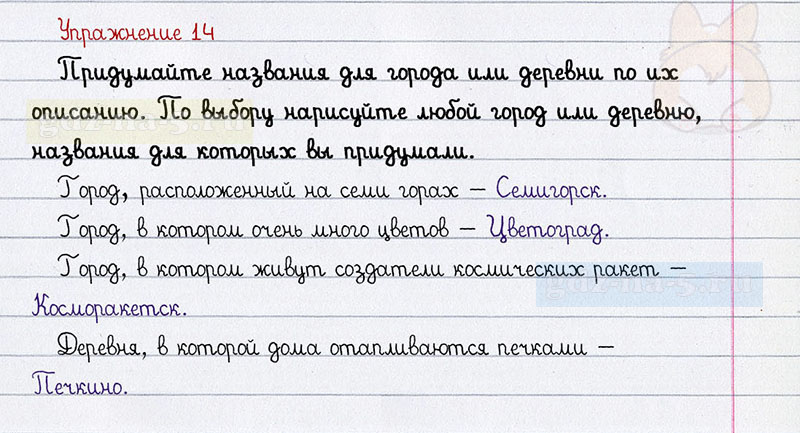 Упражнение 14
Придумайте названия для города или деревни по их
описанию. По выбору нарисуйте любой город или деревню,
названия для которых вы придумали.
Город, расположенный на семи горах – Семигорск.
Город, в котором очень много цветов – Цветоград.
Город, в котором живут создатели космических ракет –
gdz-na-5.ru
Косморакетск.
Деревня, в которой дома отапливаются печками –
Печкино.